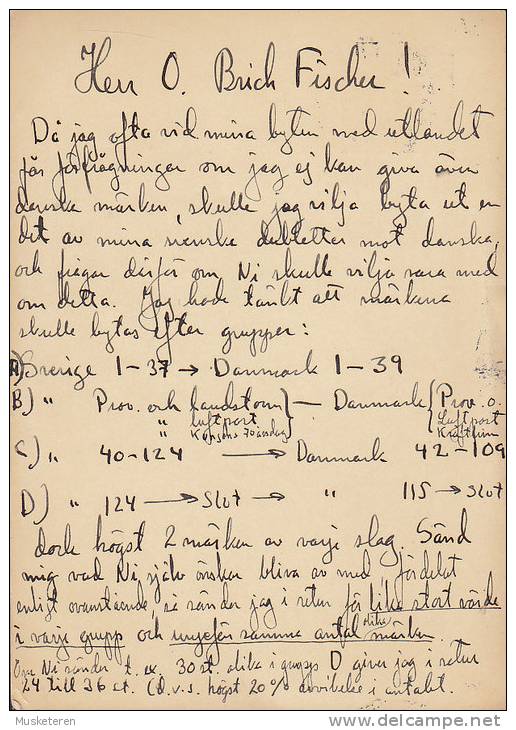 Herr O. Brich Fischer!
Då jag ofta vid mina byten med utlandet
får förfrågningar om jag ej kan giva även
danska märken, skulle jag vilja byta ut en
del av mina svenska dubbletter mot danska,
och frågar därför om Ni skulle vilja vara med
om detta. Jag hade tänkt att märkena
skulle bytas efter grupper:
A) Sverige 1-37 → Danmark 1-39
B.) " Prov. och landstorm — Danmark Prov. o.
" luftpost Luftpost
" Kungens 70 årsdag
C.) " 40-124 → Danmark 42-109
D) " 124 → Slut → " 115 → Slut
dock högst 2 märken av varje slag. Sänd
mig vad Ni själv önskar bliva av med, fördelat
enligt ovanstående, så sänder jag i retur för lika stort värde
i varje grupp och ungefär samma antal olika märken.
Om Ni sänder t. ex. 30 st. olika i grupp D giver jag i retur
24 till 36 st. (d.v.s. högst 20% avvikelse i antalet.
Musketeren
delcampe.net